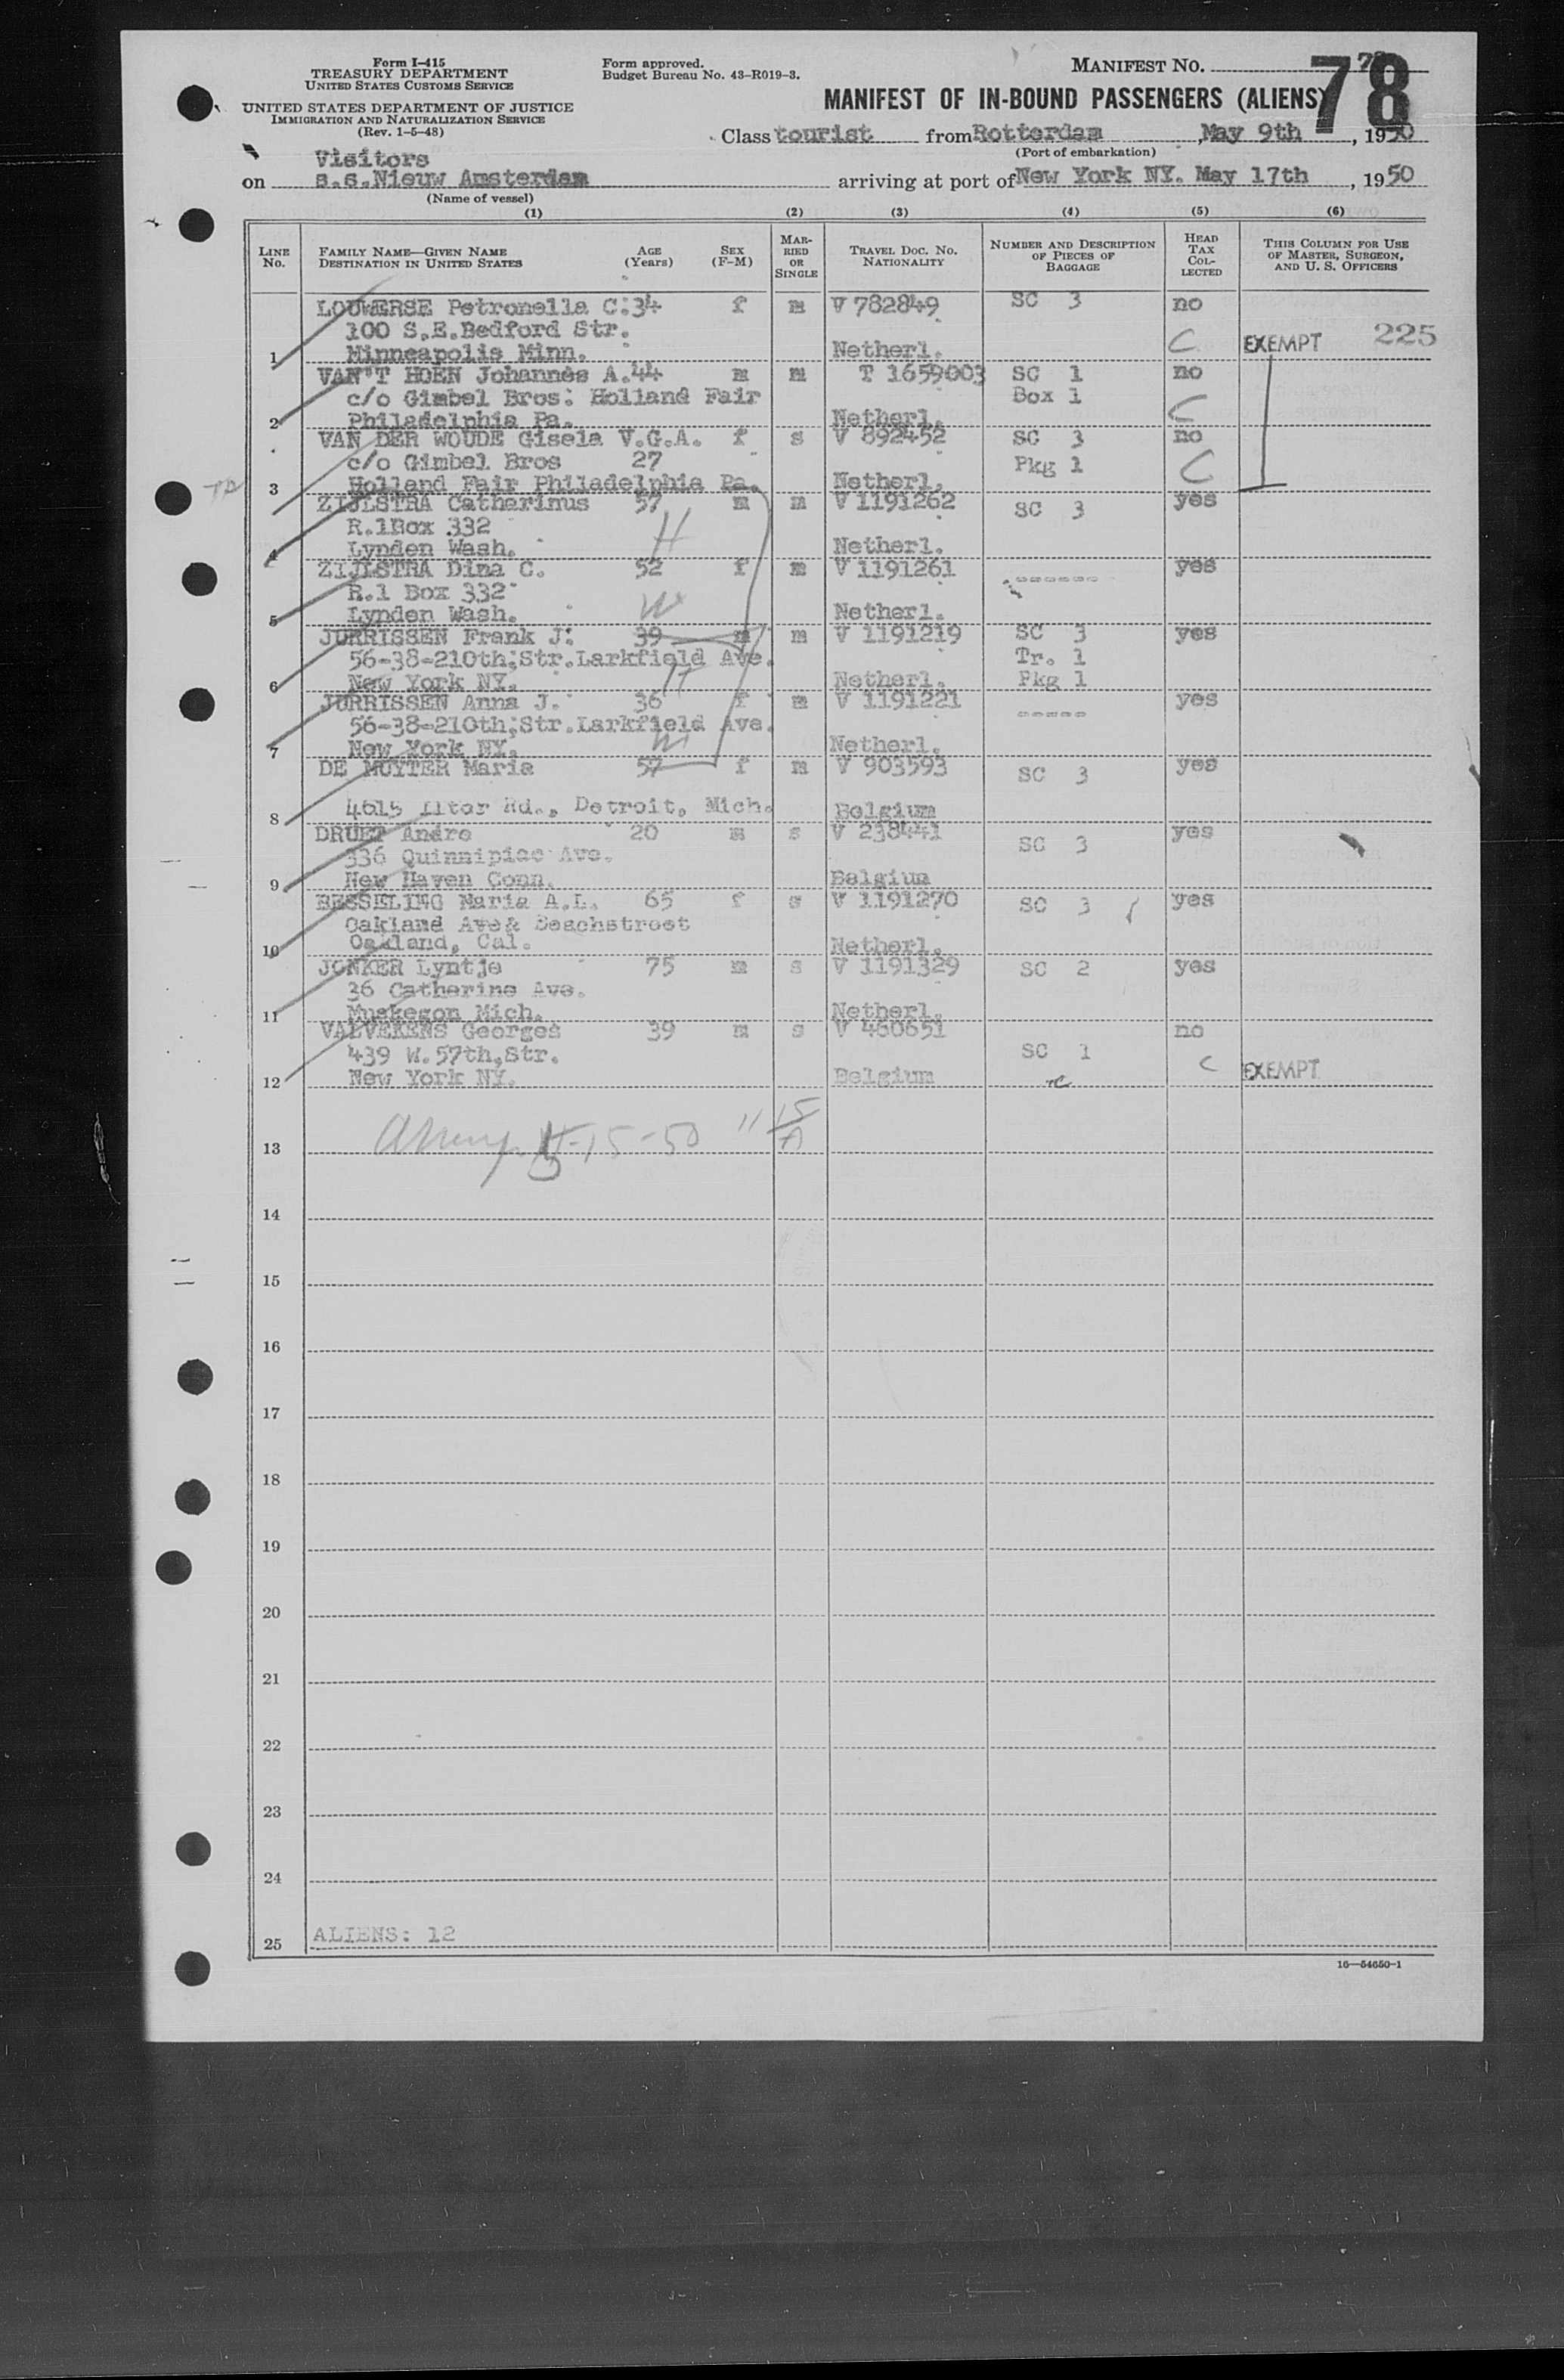 Form I-415
TREASURY DEPARTMENT
UNITED STATES CUSTOMS SERVICE
UNITED STATES DEPARTMENT OF JUSTICE
IMMIGRATION AND NATURALIZATION SERVICE
(Rev. 1-5-48)
Form approved.
Budget Bureau No. 43-R019-3.
MANIFEST NO. 78
MANIFEST OF IN-BOUND PASSENGERS (ALIENS)
Class tourist from Rotterdam, May 9th, 1950
(Port of embarkation)
Visitors
on s.s. Nieuw Amsterdam arriving at port of New York NY. May 17th, 1950
(Name of vessel)
(1) (2) (3) (4) (5) (6)
LINE No. FAMILY NAME—GIVEN NAME DESTINATION IN UNITED STATES AGE (Years) SEX (F-M) MARRIED OR SINGLE TRAVEL DOC. NO. NATIONALITY NUMBER AND DESCRIPTION OF PIECES OF BAGGAGE HEAD TAX COLLECTED THIS COLUMN FOR USE OF MASTER, SURGEON, AND U. S. OFFICERS
LOUWERSE Petronella C. 34 f m V 782849 SC 3 no
100 S.E. Bedford Str. C EXEMPT 225
1 Minneapolis Minn. Netherl.
VAN'T HOEN Johannes A. 44 m m T 1659003 SC 1 no
c/o Gimbel Bros: Holland Fair Box 1
2 Philadelphia Pa. Netherl. C
VAN DER WOUDE Gisela V.G.A. f s V 892452 SC 3 no
c/o Gimbel Bros 27 Pkg 1 C
3 Holland Fair Philadelphia Pa. Netherl.
ZIJLSTRA Catharinus 57 m m V 1191262 SC 3 yes
R.1Box 332 H
4 Lynden Wash. Netherl.
ZIJLSTRA Dina C. 52 f m V 1191261 ------ yes
R.1 Box 332 W
5 Lynden Wash. Netherl.
JURRISSEN Frank J. 39 m m V 1191219 SC 3 yes
56-38-210th, Str. Larkfield Ave. Tr. 1
6 New York NY. H Netherl. Pkg 1
JURRISSEN Anna J. 36 f m V 1191221 ----- yes
56-38-210th, Str. Larkfield Ave.
7 New York NY. W Netherl.
DE MUYTER Maria 57 f m V 903593 SC 3 yes
8 4615 Rd., Detroit, Mich. Belgium
DRUET Andre 20 m s V 238441 SC 3 yes
336 Quinnipiac Ave.
9 New Haven Conn. Belgium
BESSELING Maria A.L. 65 f s V 1191270 SC 3 yes
Oakland Ave& Beachstreet
10 Oakland, Cal. Netherl.
JONKER Lyntje 75 m s V 1191329 SC 2 yes
36 Catherine Ave.
11 Muskegon Mich. Netherl.
VALVEKENS Georges 39 m s V 460651 no
439 W. 57th, Str. SC 1
12 New York NY. Belgium C EXEMPT
13 5-15-50
14
15
16
17
18
19
20
21
22
23
24
25 ALIENS: 12
16—54650-1